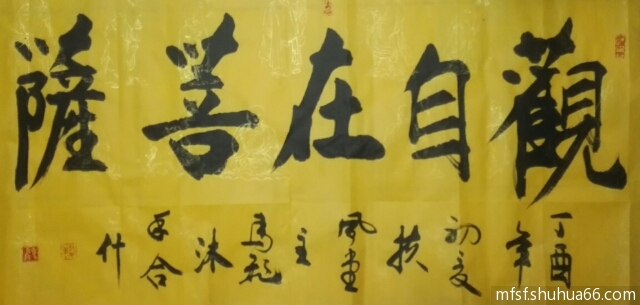 觀自在菩薩
丁酉年初夏扶風堂主馬龍沐手合什
mfsf.shuhua66.com